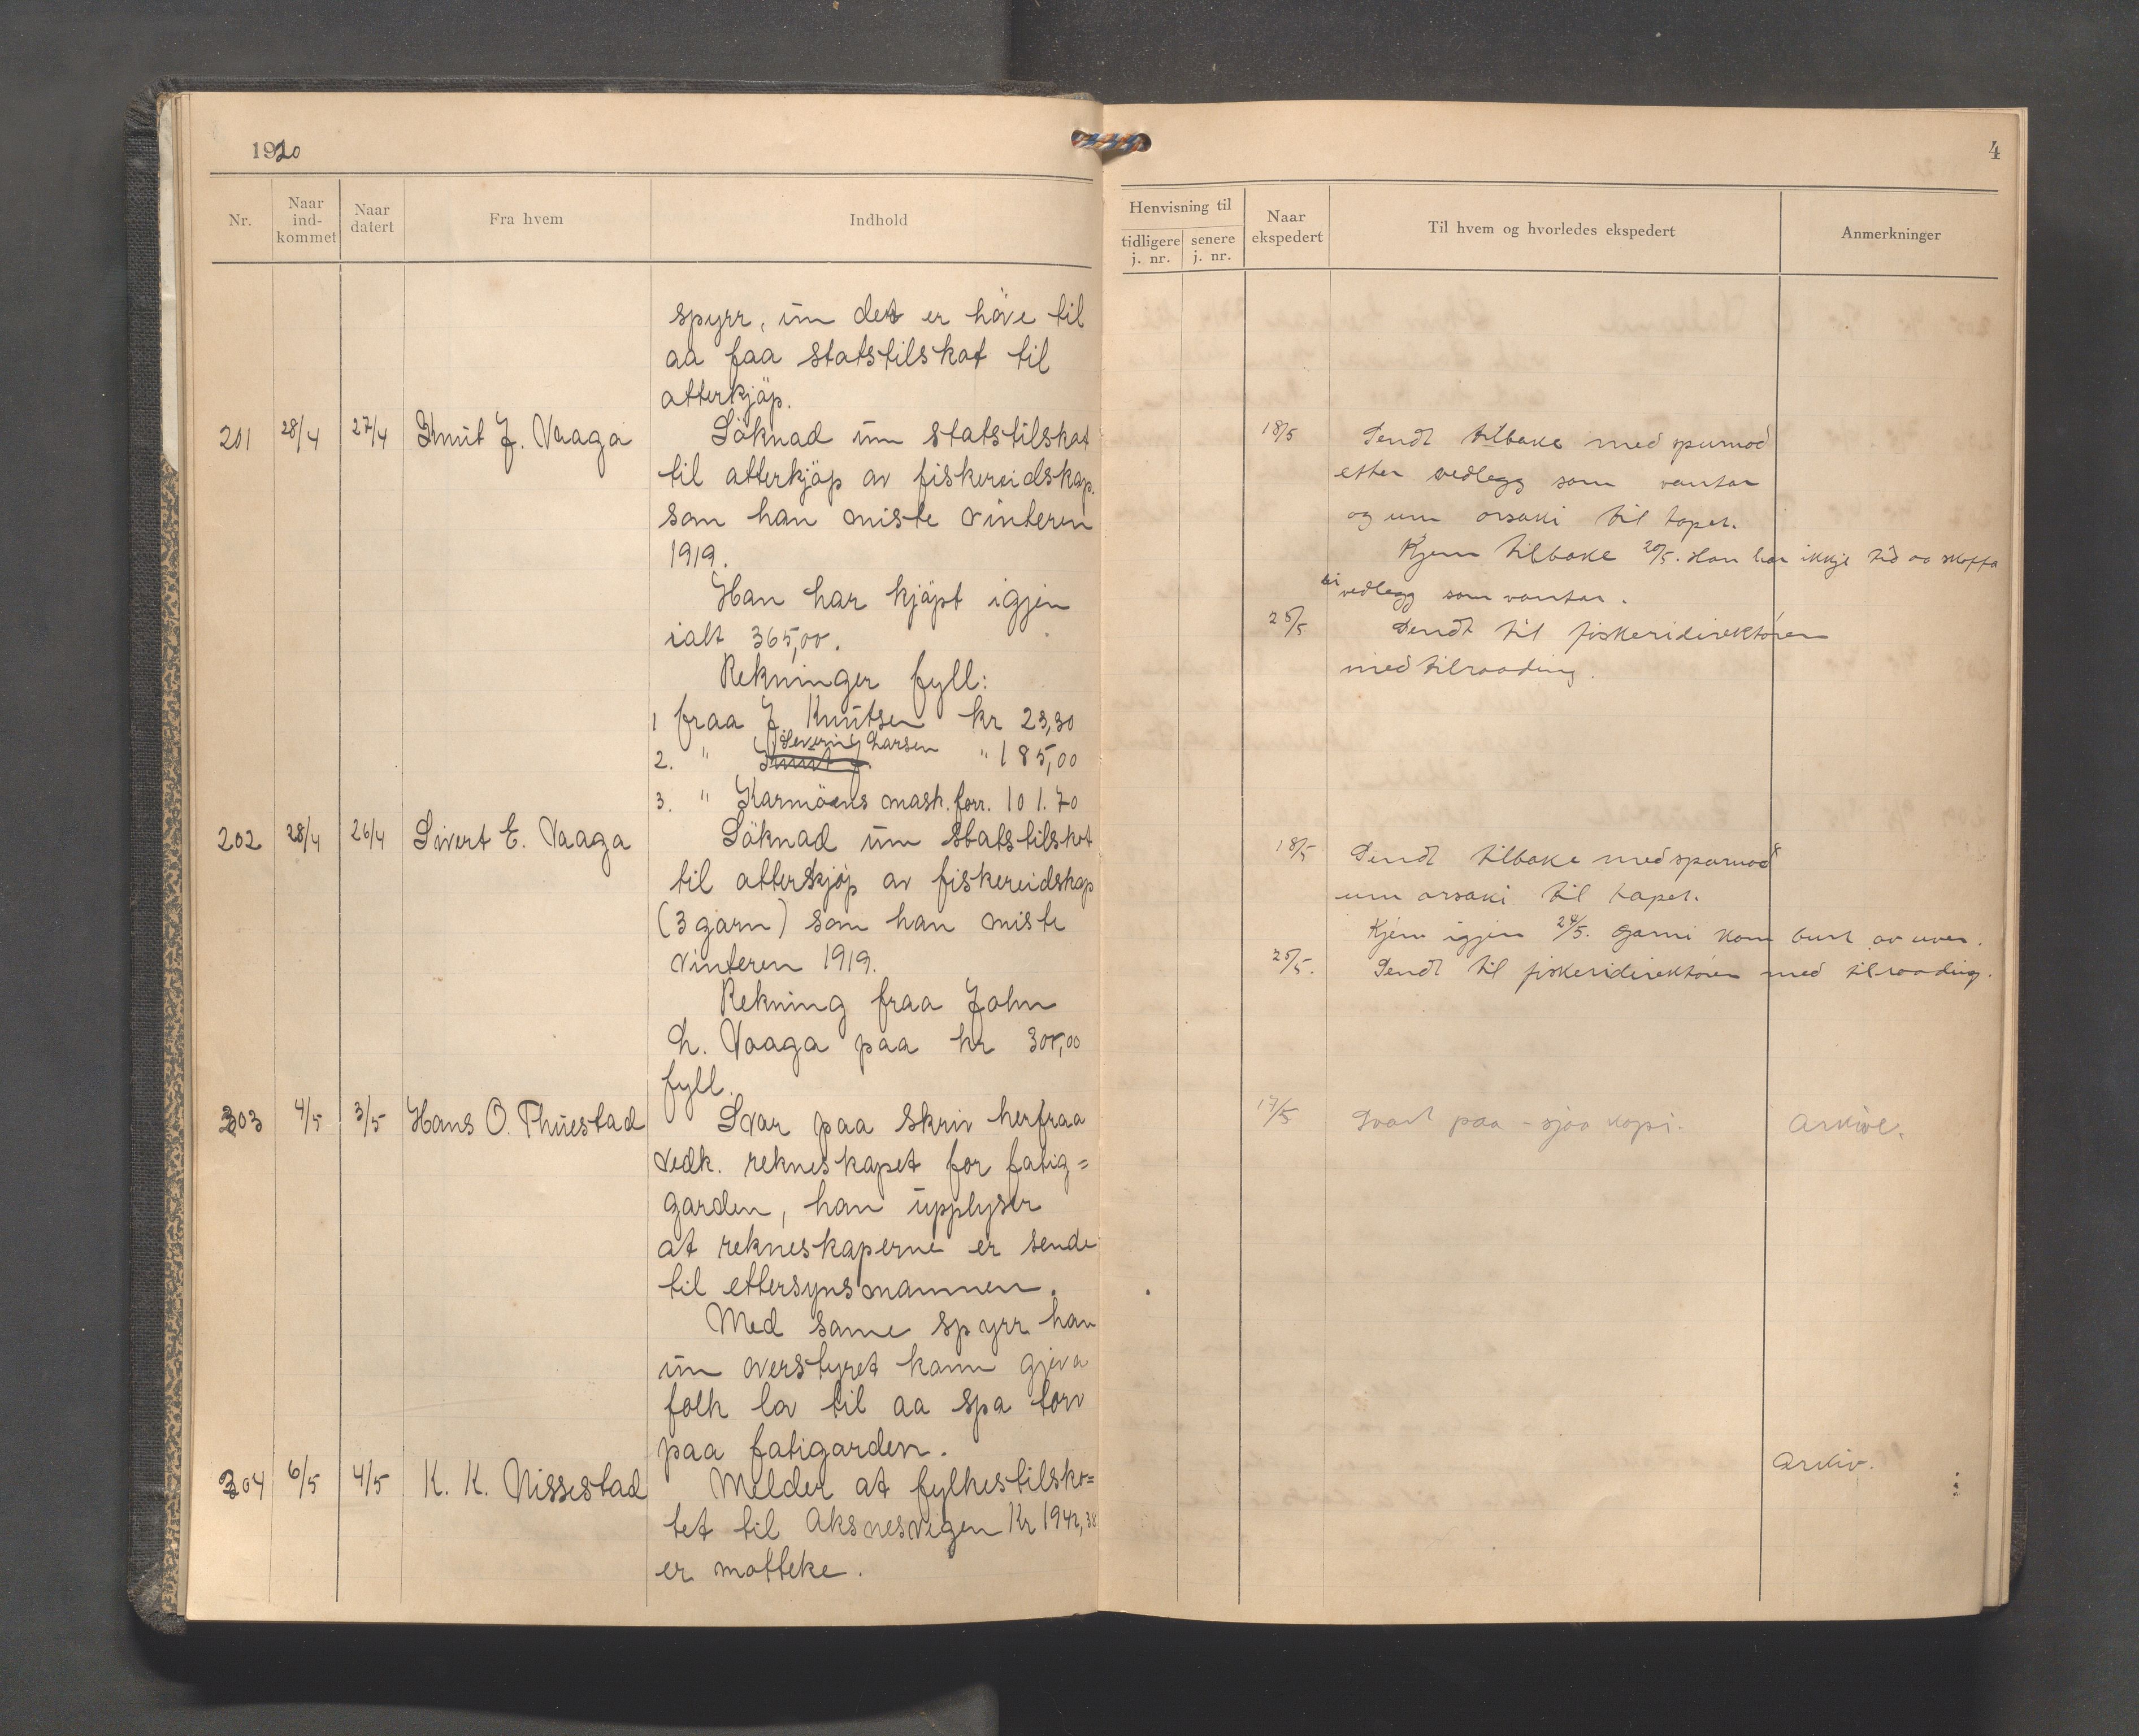 1920
Nr.
Naar ind-kommet
Naar datert
Fra hvem
Indhold
spyrr, um det er høve til
aa faa statstilskot til
atterkjöp.
201 28/4 27/4 Knut J. Vaaga Söknad um statstilskot
til atterkjöp av fiskereidskap.
som han miste vinteren
1919.
Han har kjöpt igjen
ialt 365,00.
Rekninger fyll:
1 fraa J. Knutsen kr 23,30
Severin Larsen
2. " Knut J. " 185,00
3. " Karmöens mask. forr. 101.70
202 28/4 26/4 Sivert E. Vaaga Söknad um statstilskot
til atterkjöp av fiskereidskap
(3 garn) som han miste
vinteren 1919.
Rekning fraa John
L. Vaaga paa kr 300,00
fyll.
203 4/5 3/5 Hans O. Thuestad Svar paa skriv herfraa
vedk. rekneskapet for fatig=
garden, han upplyser
at rekneskaperne er sende
til ettersynsmannen.
Med same spyrr han
um overstyret kann gjeva
folk lov til aa spa torv
paa fatigarden.
204 6/5 4/5 K. K. Nissestad Melder at fylkestilsko=
tet til Aksnesvegen Kr 1942,38
er motteke.
4
Henvisning til
tidligere j. nr.
senere j. nr.
Naar ekspedert
Til hvem og hvorledes ekspedert
Anmerkninger
18/5 Sendt tilbake med spurnad
etter vedlegg som vantar
og um orsaki til tapet.
Kjem tilbake 20/5. Han har ikkje tid aa skaffa
vedlegg som vantar.
25/5 Sendt til fiskeridirektören
med tilraading.
18/5 Sendt tilbake med spurnad
um orsaki til tapet.
Kjem igjen 24/5. Garni kom burt av uver.
25/5. Sendt til fiskeridirektören med tilraading.
17/5 Svart paa - sjaa kopi. Arkive.
Arkiv.